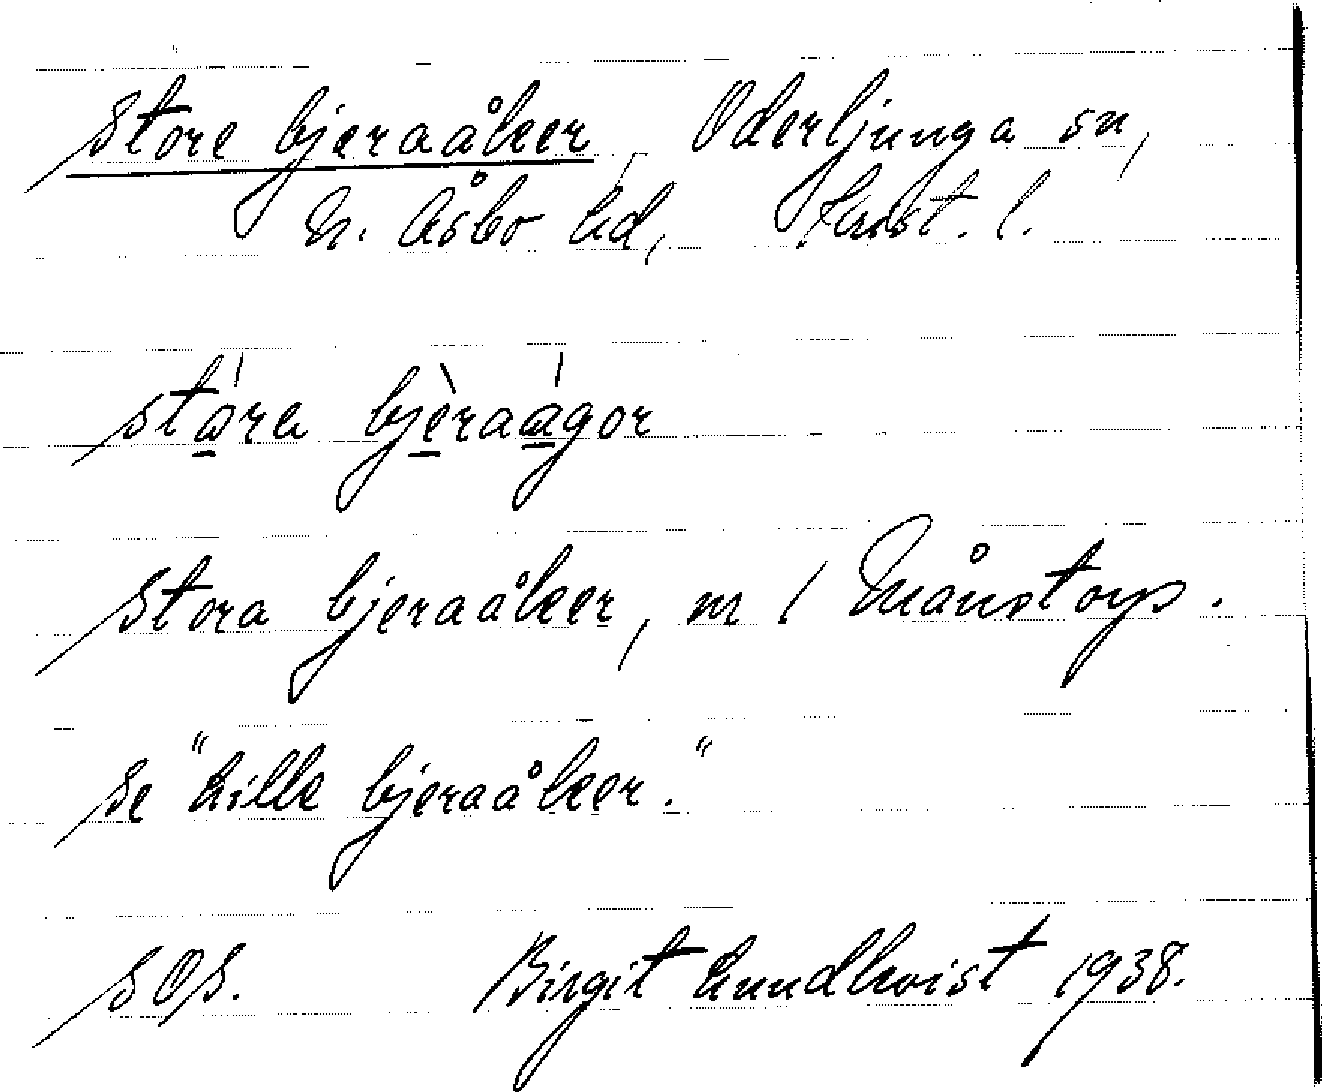 Store bjeraåker, Oderljunga sn,
N. Åsbo hd, Krist. l.
stora bjèraågor
Stora bjeraåker, m / Månstorp.
Se "Lille bjeraåker."
SOS. Birgit Lundkvist 1938.